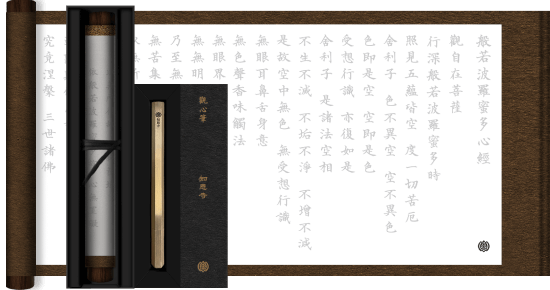 般若波羅蜜多心經
觀自在菩薩
行深般若波羅蜜多時
照見五蘊皆空 度一切苦厄
舍利子 色不異空 空不異色
色即是空 空即是色
受想行識 亦復如是
舍利子 是諸法空相
不生不滅 不垢不淨 不增不減
是故空中無色 無受想行識
無眼耳鼻舌身意
無色聲香味觸法
無眼
無無明
乃至無
無苦集
究竟涅槃 三世諸佛
觀心筆